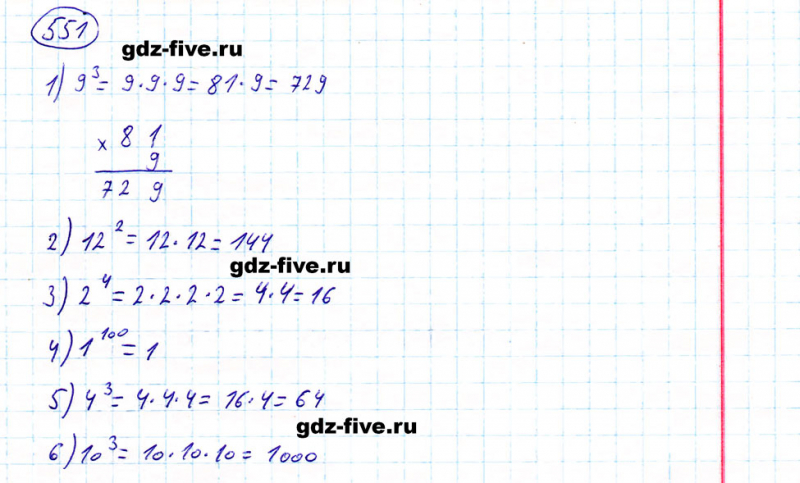 551
gdz-five.ru
1) 9³ = 9·9·9 = 81·9 = 729
× 81
9
729
2) 12² = 12·12 = 144
gdz-five.ru
3) 2⁴ = 2·2·2·2 = 4·4 = 16
4) 1¹⁰⁰ = 1
5) 4³ = 4·4·4 = 16·4 = 64
gdz-five.ru
6) 10³ = 10·10·10 = 1000